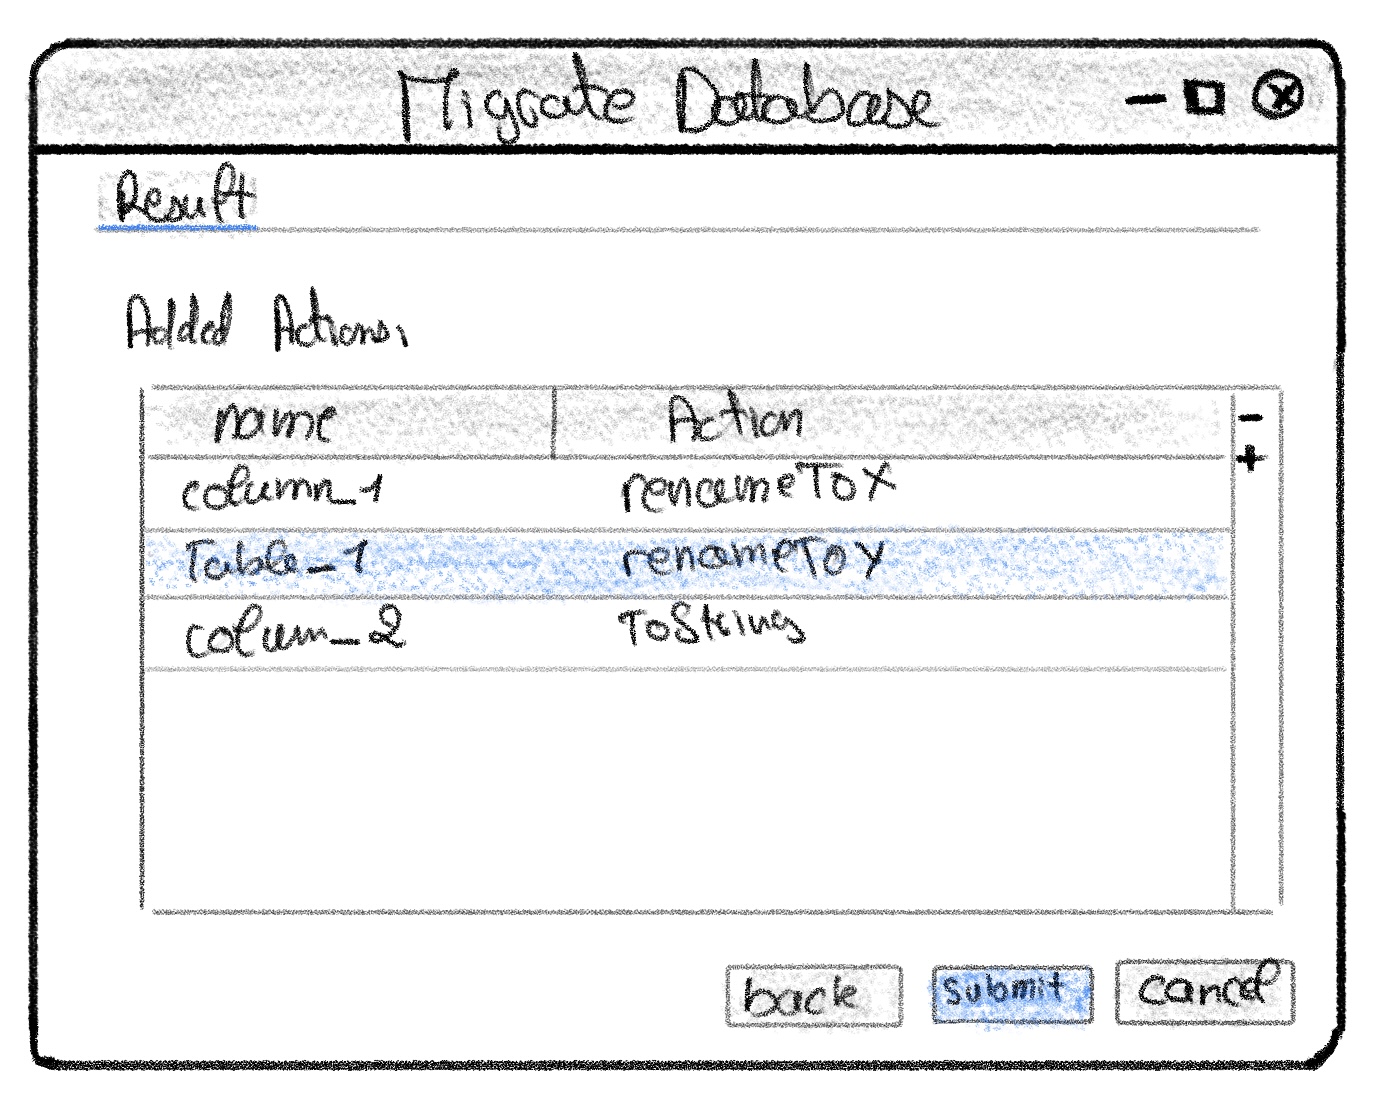 Migrate Database
Result
Added Actions,
name Action
column_1 renameToX
Table_1 renameToY
colum_2 ToString
back Submit cancel